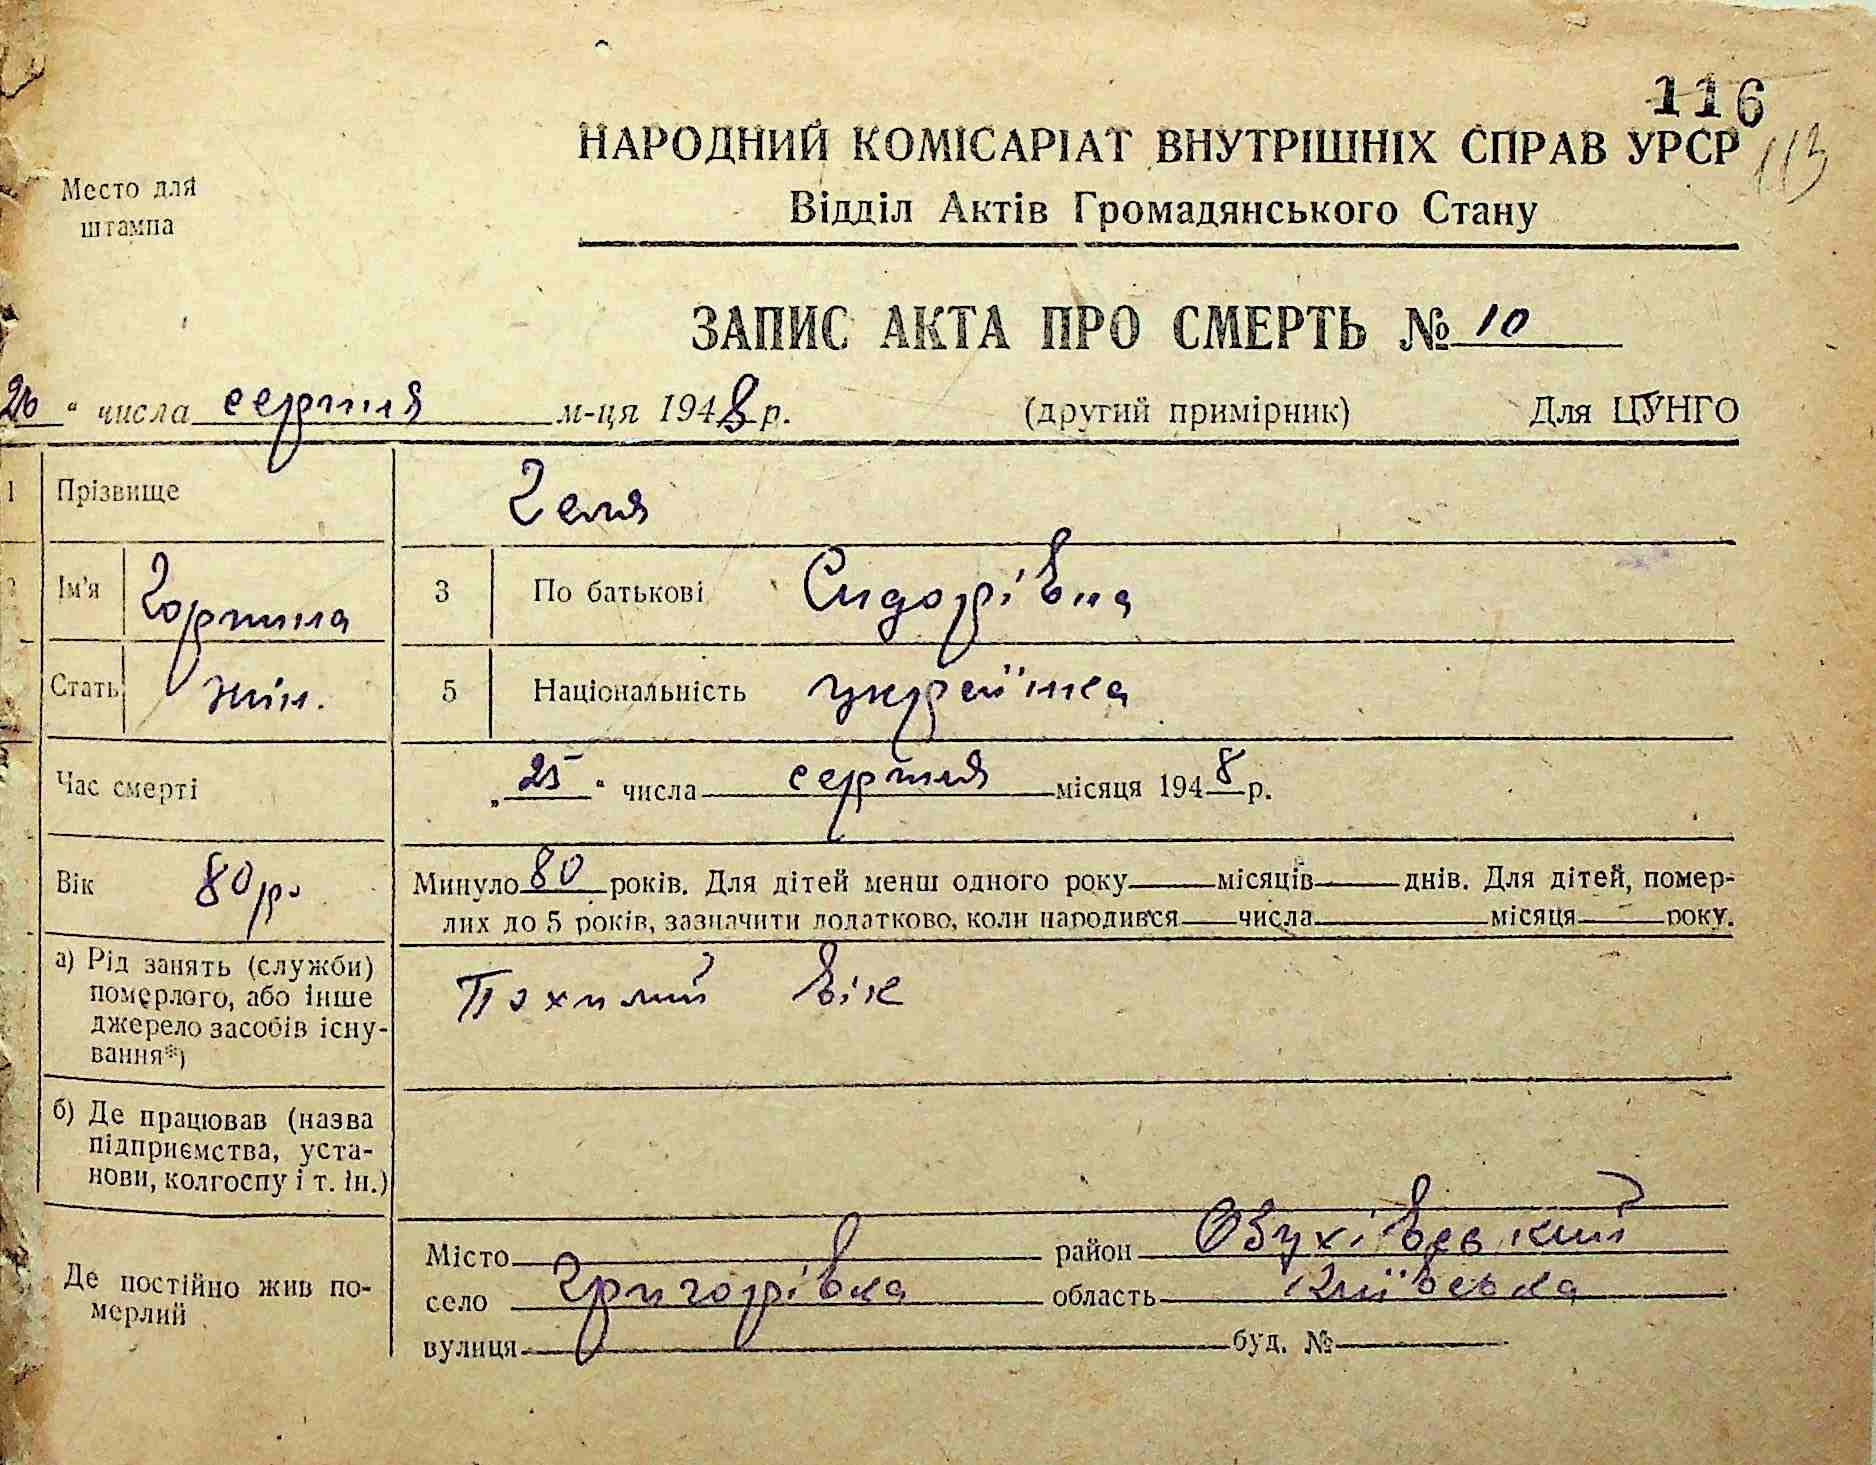 116
113
НАРОДНИЙ КОМІСАРІАТ ВНУТРІШНІХ СПРАВ УРСР
Відділ Актів Громадянського Стану
Место для
штампа
ЗАПИС АКТА ПРО СМЕРТЬ № 10
26 " числа серпня м-ця 1948 р. (другий примірник) Для ЦУНГО
1 Прізвище Геля
2 Ім'я Горпина 3 По батькові Сидорівна
Стать жін. 5 Національність українка
Час смерті „ 25 " числа серпня місяця 1948 р.
Вік 80 р. Минуло 80 років. Для дітей менш одного року місяців днів. Для дітей, помер-
лих до 5 років, зазначити додатково, коли народився числа місяця року.
а) Рід занять (служби)
померлого, або інше
джерело засобів існу-
вання*)
Похилий вік
б) Де працював (назва
підприємства, уста-
нови, колгоспу і т. ін.)
Де постійно жив по-
мерлий
Місто район Обухівський
село Григорівка область Київська
вулиця буд. №